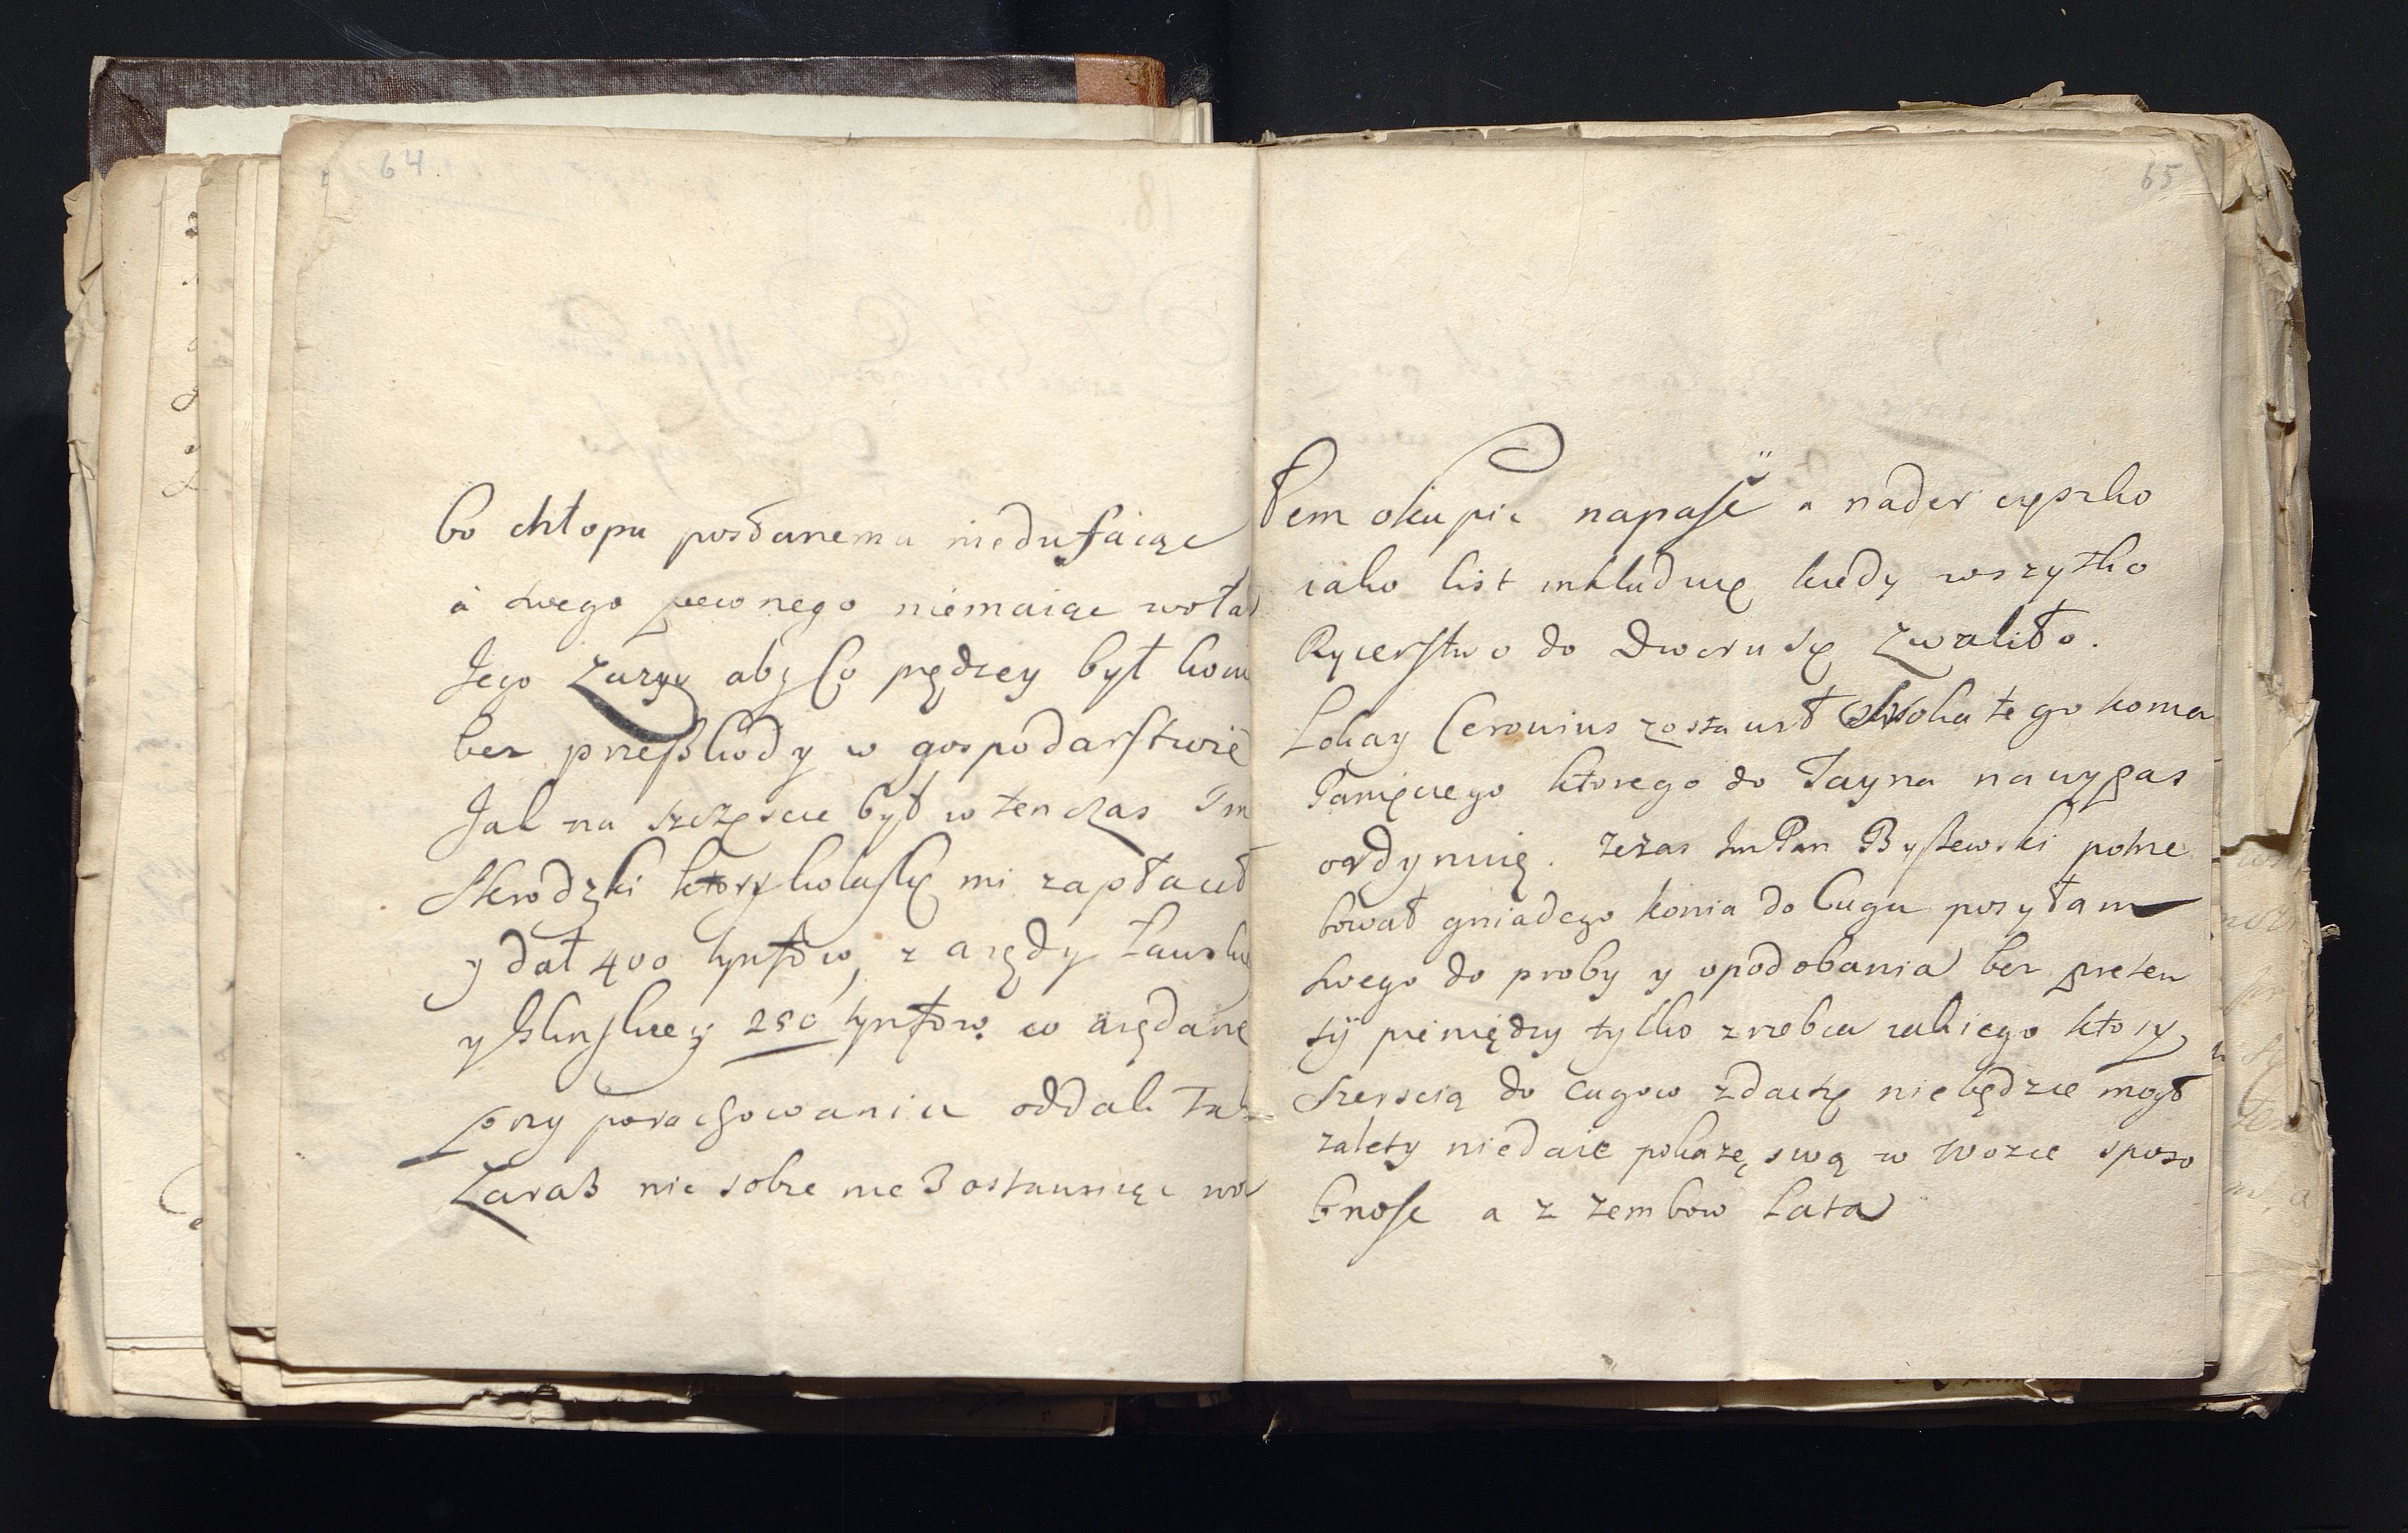 64.
bo chłopu posłanemu niedufaiąc
à swego pewnego niemaiąc wołał
Jego zażyy aby Co pędzey był koni
bez przeßkody w gospodarstwie
Jak na szczęscie był w ten czas Im
Skrodzki ktory kolasę mi zapłacił
y dał 400 tynfow, z arędy
y 250 tynfow co arędarze
przy porachowaniu oddali
Zaraß nic sobie nie Zostawuięc
65
łem okupić napaść a nader cyszko
iako list inkluduię kiedy wszytko
Rycerstwo do Dworu się Zwaliło.
Lokay zostawił tego konia
ktorego do Tayna na wypas
ordynuię. zezas Im Pan Byßewski potrze
bował gniadego konia do Cugu posyłam
swego do proby y upodobania bez preten
syi pieniędzy tylko zrobca iakiego ktory
szerscią do cugow zdac się nie będzie mogł
zalety niedaie pokażę swą w wozie sposo
bnosc a z zembow Lata